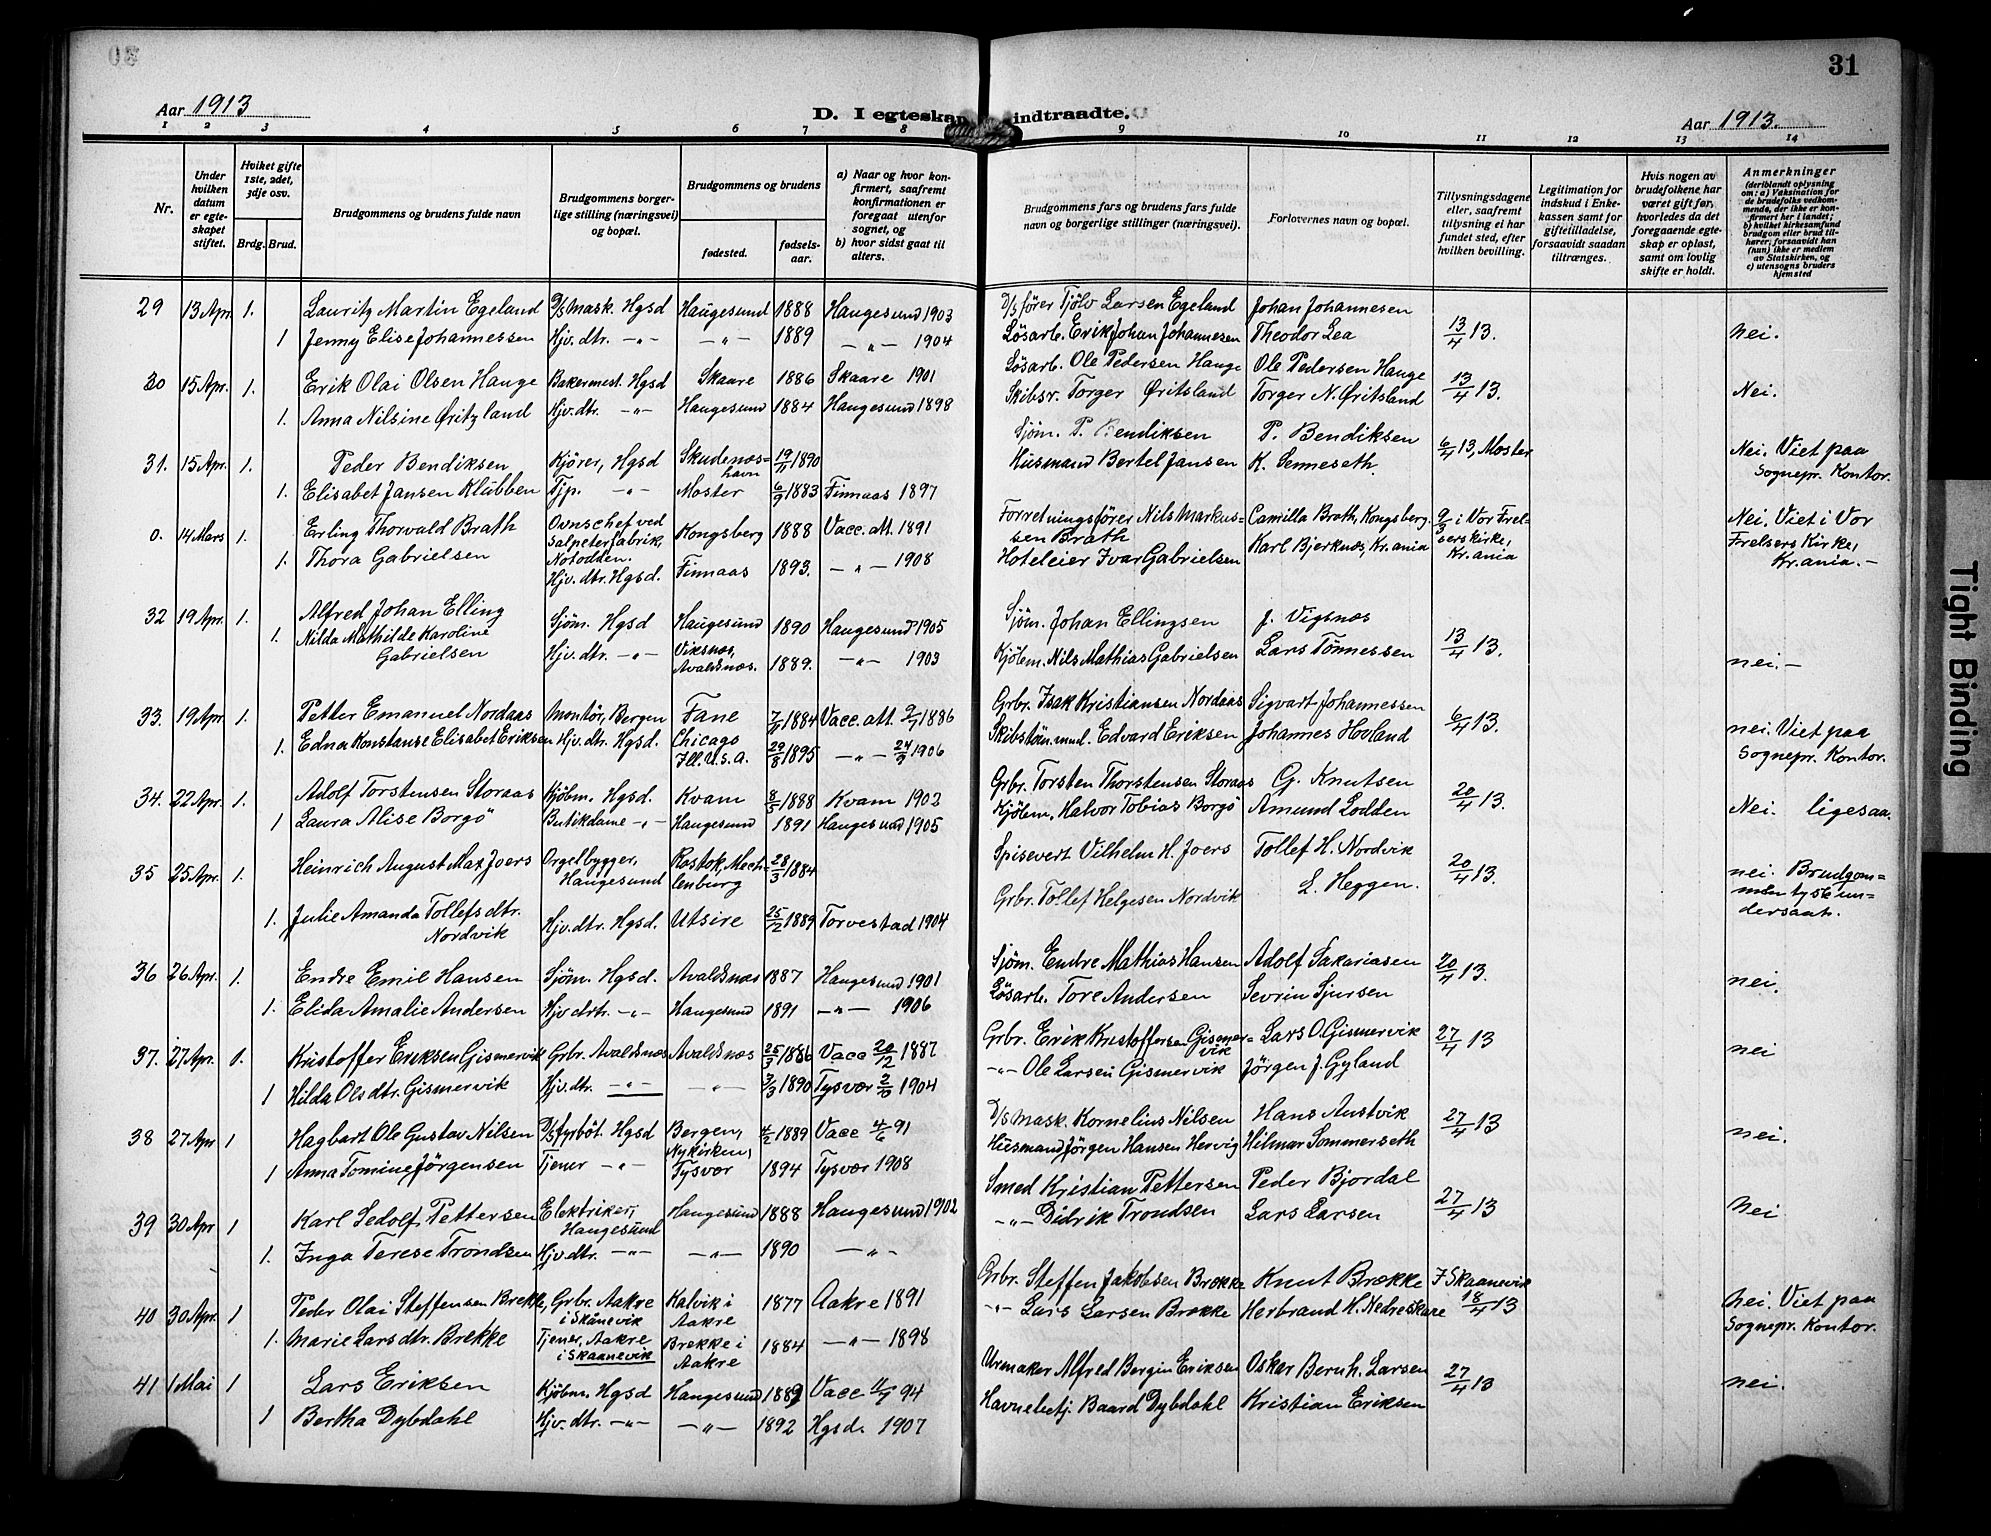 31
Aar 1913
D. I egteskap indtraadte.
Aar 1913.
1 2 3 4 5 6 7 8 9 10 11 12 13 14
Nr.
Under hvilken datum er egteskapet stiftet.
Hviket gifte 1ste, 2det, 3dje osv.
Brdg. Brud.
Brudgommens og brudens fulde navn
Brudgommens borgerlige stilling (næringsvei) og bopæl.
Brudgommens og brudens
fødested.
fødselsaar.
a) Naar og hvor konfirmert, saafremt konfirmationen er foregaat utenfor sognet, og
b) hvor sidst gaat til alters.
Brudgommens fars og brudens fars fulde navn og borgerlige stillinger (næringsvei).
Forlovernes navn og bopæl.
Tillysningsdagene eller, saafremt tillysning ei har fundet sted, efter hvilken bevilling.
Legitimation for indskud i Enkekassen samt for giftetilladelse, forsaavidt saadan tiltrænges.
Hvis nogen av brudefolkene har været gift før, hvorledes da det foregaaende egteskap er opløst, samt om lovlig skifte er holdt.
Anmerkninger
(deriblandt oplysning om: a) Vaksination for de brudefolks vedkommende, der ikke er konfirmert her i landet; b) hvilket kirkesamfund brudgom eller brud tilhører, forsaavidt han (hun) ikke er medlem av Statskirken, og c) utensogns bruders hjemsted
29 13 Apr. 1. Lauritz Martin Egeland D/S mask. Hgsd Haugesund 1888 Haugesund 1903 D/S fører Tjölv Larsen Egeland Johan Johannesen
1 Jenny Elise Johannessen Hjv. dtr. -"- -"- 1889 -"- 1904 Løsarb. Erik Johan Johannesen Theodor Lea 13/4 13. Nei.
30 15 Apr. 1. Erik Olai Olsen Hauge Bakermest. Hgsd Skaare 1886 Skaare 1901 Løsarb. Ole Pedersen Hauge Ole Pedersen Hauge
1. Anna Nilsine Øritzland Hjv. dtr. -"- Haugesund 1884 Haugesund 1898 Skibsr. Torger Øritsland Torger N. Øritsland 13/4 13. Nei.
31. 15 Apr. 1. Peder Bendiksen Kjörer, Hgsd Skudeneshavn 19/11 1890 Sjöm. P. Bendiksen P. Bendiksen 6/4 13, Moster Nei. Viet paa
1. Elisabet Jansen Klubben Tjp. -"- Moster 6/9 1883 Finnaas 1897 Husmand Bertel Jansen K. Senneseth. Sognepr. Kontor.
0. 14 Mars 1. Erling Thorvald Brath Ovnschef ved Salpeterfabrik, Notodden. Kongsberg 1888 Vacc. att. 1891 Forretningsfører Nils Markussen Brath Camilla Brath, Kongsberg. 9/3 i Vor Frelsers kirke, Kr.ania Nei. Viet i Vor Frelsers Kirke, Kr.ania.-
1. Thora Gabrielsen Hjv. dtr. Hgsd. Finnaas 1893. -"- 1908 Hoteleier Ivar Gabrielsen Karl Bjerknes, Kr.ania
32 19 Apr. 1. Alfred Johan Elling Sjöm. Hgsd Haugesund 1890 Haugesund 1905 Sjöm. Johan Ellingsen J. Vigsnæs
1. Nilda Mathilde Karoline Gabrielsen Hjv. dtr. -"- Viksnes, Avaldsnæs. 1889. -"- 1903 Kjölem. Nils Mathias Gabrielsen Lars Tönnessen 13/4 13. nei.-
33. 19 Apr 1. Petter Emanuel Nordaas Montör, Bergen Fane 7/11 1884 Vacc. att. 2/7 1886 Grbr. Isak Kristiansen Nordaas Sigvart Johannessen
1. Edna Konstanse Elisabet Eriksen Hjv. dtr. Hgsd. Chicago Ill. U.S.A. 29/8 1895 -"- 24/9 1906 Skibstöm.mnd. Edvard Eriksen Johannes Hovland 6/4 13. nei. Viet paa Sognepr. Kontor.
34. 22 Apr. 1. Adolf Torstensen Storaas Kjöbm. Hgsd. Kvam 8/5 1888 Kvam 1902 Grbr. Torsten Thorstensen Storaas G. Knutsen
1 Laura Alise Borgö Butikdame -"- Haugesund 1891 Haugesund 1905 Kjölem. Halvor Tobias Borgö Amund Lodden 20/4 13. Nei. ligesaa.
35 25 Apr. 1. Heinrich August Max Joers Orgelbygger, Haugesund Rostok, Mechlenburg 28/3 1884 Spisevert Vilhelm H. Joers Tollef H. Nordvik 20/4 13. nei. Brudgommen tysk undersaat.
1. Julie Amanda Tollefsdtr. Nordvik Hjv. dtr. Hgsd. Utsire 25/12 1889 Torvestad 1904 Grbr. Tollef Helgesen Nordvik L. Heggen.
36 26 Apr. 1. Endre Emil Hansen Sjöm. Hgsd. Avaldsnæs 1887 Haugesund 1901 Sjöm. Endre Mathias Hansen Adolf Sakariasen 20/4 13. nei.
1. Elida Amalie Andersen Hjv. dtr. -"- Haugesund 1891 -"- 1906 Løsarb. Tore Andersen Sevrin Sjursen
37. 27 Apr. 0. Kristoffer Eriksen Gismervik Grbr. Avaldsnæs Avaldsnæs 25/3 1886 Vacc 20/12 1887 Grbr. Erik Kristoffersen Gismervik Lars O. Gismervik 27/4 13 nei
1 Hilda Olsdtr. Gismervik Hjv. dtr. -"- -"- 3/3 1890 Tysvær 2/10 1904 -"- Ole Larsen Gismervik Jörgen J. Gyland
38 27 Apr 1 Hagbart Ole Gustav Nilsen D/S fyrböt. Hgsd Bergen, Nykirken, 4/2 1889 Vacc 4/6 91 D/S mask. Kornelius Nilsen Hans Austvik 27/4 13 nei.
1 Anna Tomine Jörgensen Tjener -"- Tysvær 1894 Tysvær 1908 Husmand Jörgen Hansen Hervig Hilmar Sommerseth
39 30 Apr 1 Karl Sedolf Pettersen Elektriker, Haugesund Haugesund 1888 Haugesund 1902 Smed Kristian Pettersen Peder Bjordal 27/4 13 Nei
1. Inga Terese Trondsen Hjv. dtr. -"- -"- 1890 -"- -"- Didrik Trondsen Lars Larsen
40 30 Apr. 1 Peder Olai Steffensen Brekke, Grbr. Aakre i Skånevik Kalvik i Aakre 1877 Aakre 1891 Grbr. Steffen Jakobsen Brække Knut Brække I Skaanevik 18/4 13 Nei. Viet paa Sognepr. Kontor.
1. Marie Larsdtr. Brekke Tjener, Aakre i Skaanevik Brekke i Aakre 1884 -"- 1898 -"- Lars Larsen Brække Herbrand H. Nedreskare
41 1 Mai 1 Lars Eriksen Kjöbm. Hgsd Haugesund 1889 Vacc 11/7 94 Urmaker Alfred Bergin Eriksen Oskar Bernh. Larsen 27/4 13 nei.
1 Bertha Dybdahl Hjv. dtr. -"- -"- 1892 Hgsd. 1907 Havnebetj. Baard Dybdahl Kristian Eriksen
Tight Binding